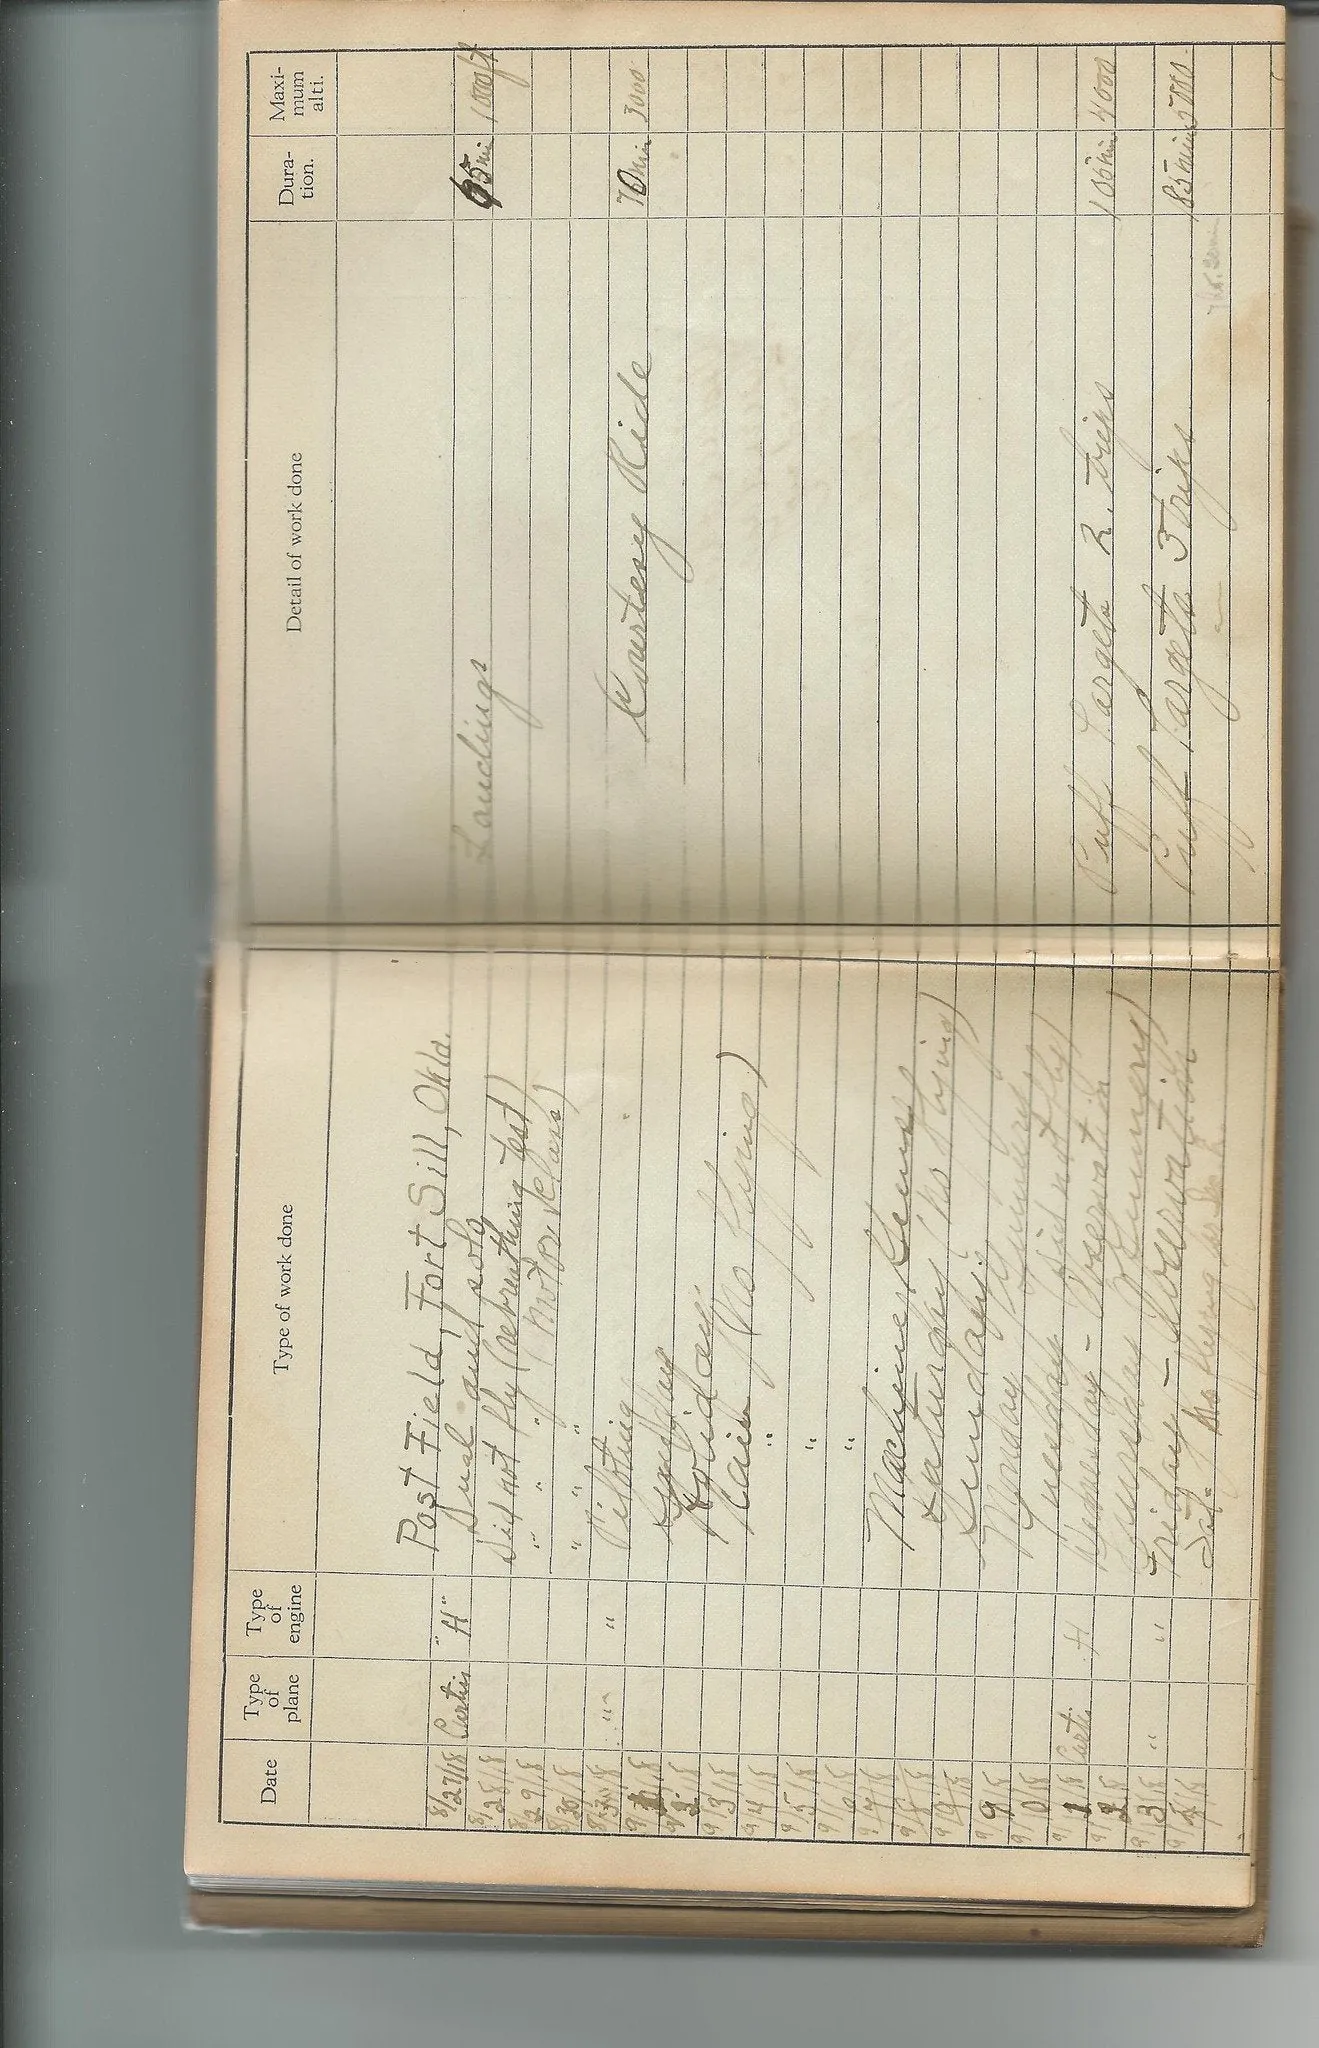 Date Type of plane Type of engine Type of work done Detail of work done Dura-tion. Maxi-mum alti.
Post Field, Fort Sill, Okla.
8/27/18 Curtis "H" Dual and solo Landings 65 min 1000 ft
8/28/18 Did not fly (rebreathing test)
8/29/18 " " " (Motor Class)
8/30/18 " " "
8/31/18 " " Piloting Courtesy Ride 70 min 3000
9/1/18 Sunday
9/2/18 Holiday
9/3/18 Rain (No Flying)
9/4/18 "
9/5/18 "
9/6/18 "
9/7/18 Machine Guns
9/8/18 Saturday (No Flying)
9/9/18 Sunday.
9/9/18 Monday Gunnery
9/10/18 Tuesday did not fly)
9/11/18 Curtis H Wednesday - Observation Puff Targets 2 trips 105 min 4000
9/12/18 Thursday Gunnery)
9/13/18 " " Friday - Observation Puff Targets 3 Trips 185 mins
9/14/18 Sat. No flying